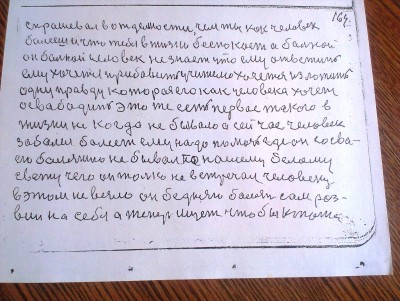 164.
спрашевал в отделности, чем ты как человек
балееш и что тебя в жизни беспокоет а балной
он балной человек не знает что ему ответить
ему хочется прибавить учителю хочется изложить
одну правду которая его как человека хочет
освабадить это же есть первое такого в
жизни не когда не бывало а сейчас человек
забалел балеет ему надо помоч где он со сва-
ею балязню не бывал по нашему белому
свету чего он толко не встречал человеку
в этом не везло он бедняга балян сам роз-
вил на себя а теперь ищет что бы к тома-